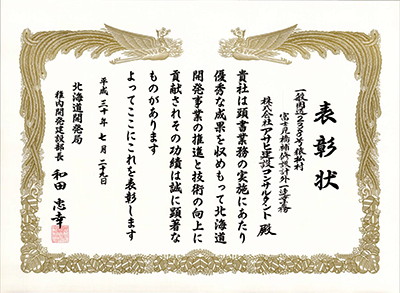 表彰状
一般国道238号猿払村
富士見橋補修設計外一連業務
株式会社アサヒ建設コンサルタント 殿
貴社は頭書業務の実施にあたり
優秀な成果を収めもって北海道
開発事業の推進と技術の向上に
貢献されその功績は誠に顕著な
ものがあります
よってここにこれを表彰します
平成三十年七月二十九日
北海道開発局
稚内開発建設部長 和田忠幸